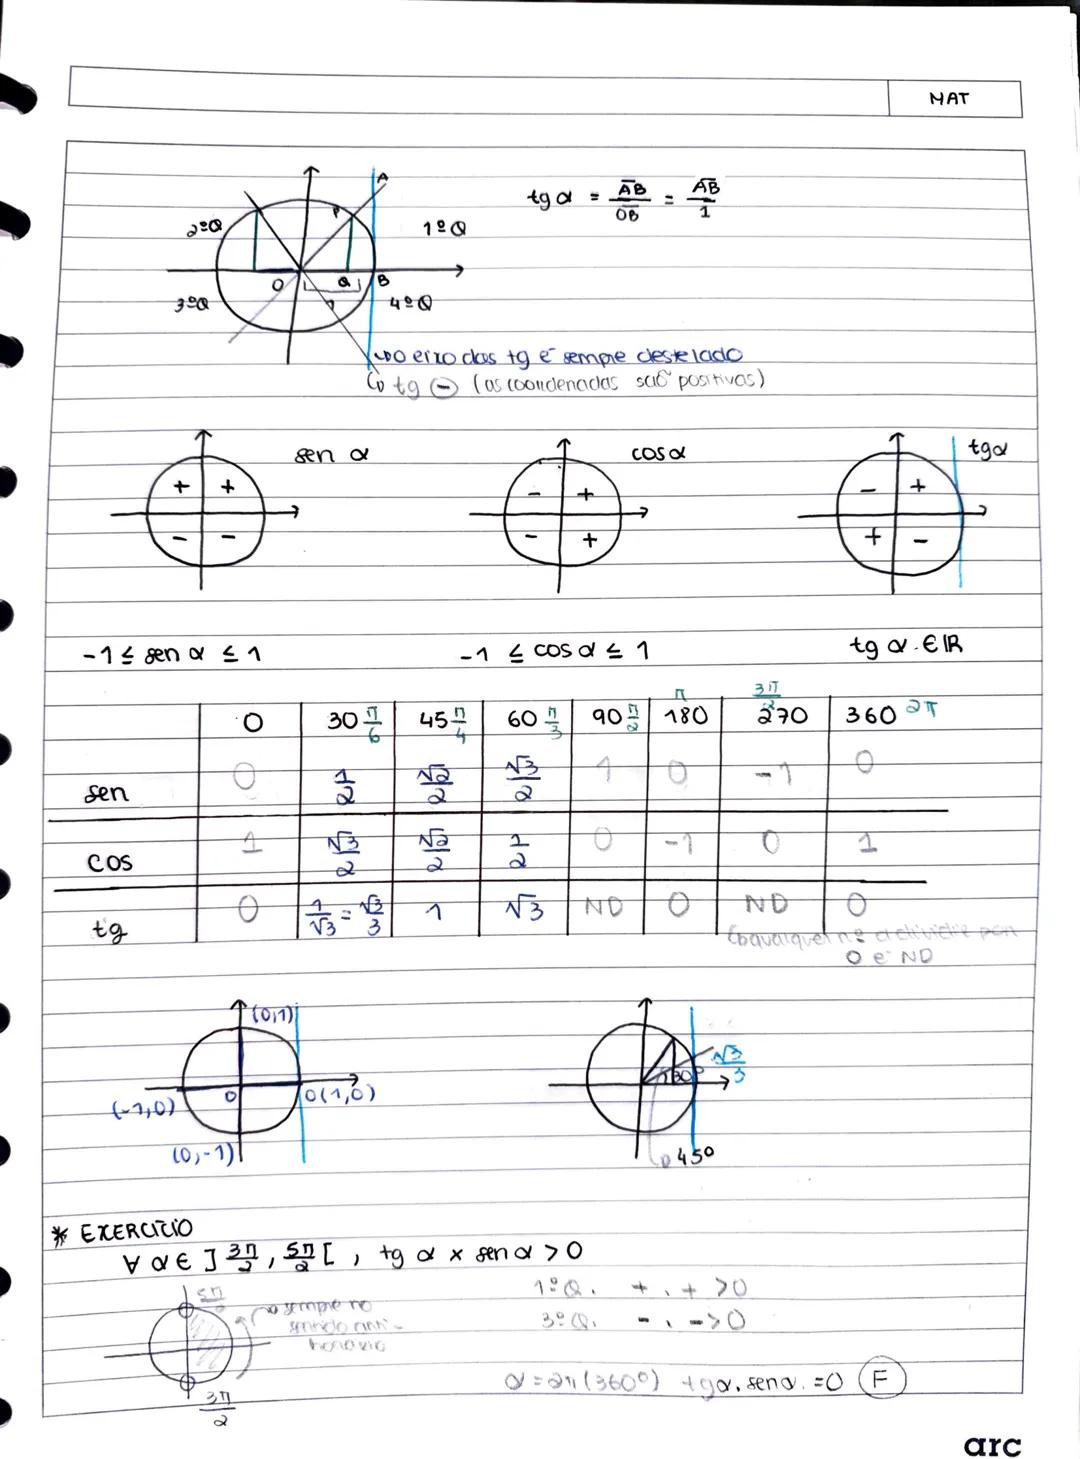 MAT
tg α = AB/OB = AB/1
A
2ºQ
P
1ºQ
O
Q
B
3ºQ
1
4ºQ
↳ O eixo das tg é sempre deste lado
↳ tg ⊖ (as coordenadas são positivas)
sen α
cos α
tg α
+ +
- +
- +
- -
- +
+ -
-1 ≤ sen α ≤ 1
-1 ≤ cos α ≤ 1
tg α ∈ IR
0 | 30 π/6 | 45 π/4 | 60 π/3 | 90 π/2 | 180 π | 270 3π/2 | 360 2π
sen | 0 | 1/2 | √2/2 | √3/2 | 1 | 0 | -1 | 0
cos | 1 | √3/2 | √2/2 | 1/2 | 0 | -1 | 0 | 1
tg | 0 | 1/√3 = √3/3 | 1 | √3 | ND | 0 | ND | 0
↳ qualquer nº a dividir por
0 é ND
(0,1)
√3/3
30º
(-1,0)
O
0(1,0)
(0,-1)
↳ 45º
* EXERCÍCIO
∀ α ∈ ] 3π/2 , 5π/2 [ , tg α x sen α > 0
1ºQ. + . + > 0
5π/2
↳ sempre no
sentido anti-
horário
3ºQ. - . - > 0
α = 2π (360º) tg α . sen α . = 0 (F)
3π/2
arc